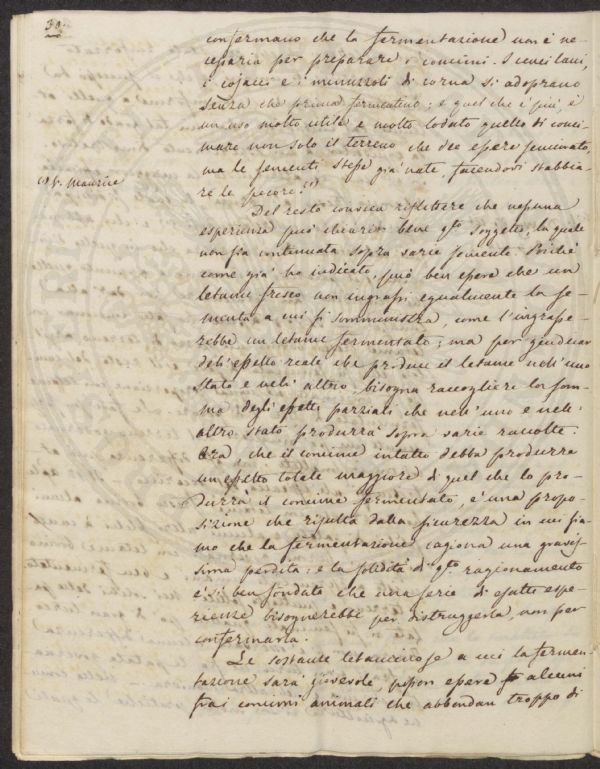 30.
confermano che la fermentazione non è ne-
cessaria per preparare i concimi. I cenci lani,
i cojacci e i minuzzoli di corna si adoprano
senza che prima fermentino; e quel che è più, è
un uso molto utile e molto lodato quello di conci-
mare non solo il terreno che dee essere seminato,
ma le sementi stesse già nate, facendovi stabbia-
re le pecore.(1)
(1) V. Maurice
Del resto convien riflettere che nessuna
esperienza può chiarir bene qto. soggetto, la quale
non sia continuata sopra varie semente. Poichè
come già ho indicato, può ben essere che un
letame fresco non ingrassi egualmente la se-
menta a cui si somministra, come l'ingrasse-
rebbe un letame fermentato; ma per giudicar
dell'effetto reale che produce il letame nell'uno
stato e nell'altro, bisogna raccogliere la som-
ma degli effetti parziali che nell'uno e nell'
altro stato produrrà sopra varie raccolte.
Ora, che il concime intatto debba produrre
un effetto totale maggiore di quel che lo pro-
durrà il concime fermentato, è una propo-
sizione che risulta dalla sicurezza in cui sia-
mo che la fermentazione cagiona una gravis-
sima perdita: e la solidità di qto. ragionamento
è sì ben fondata che una serie di esatte espe-
rienze bisognerebbe per distruggerla, non per
confermarla.
Le sostanze letaminose a cui la fermen-
tazione sarà giovevole, posson essere alcuni
fra i concimi animali che abbondan troppo di